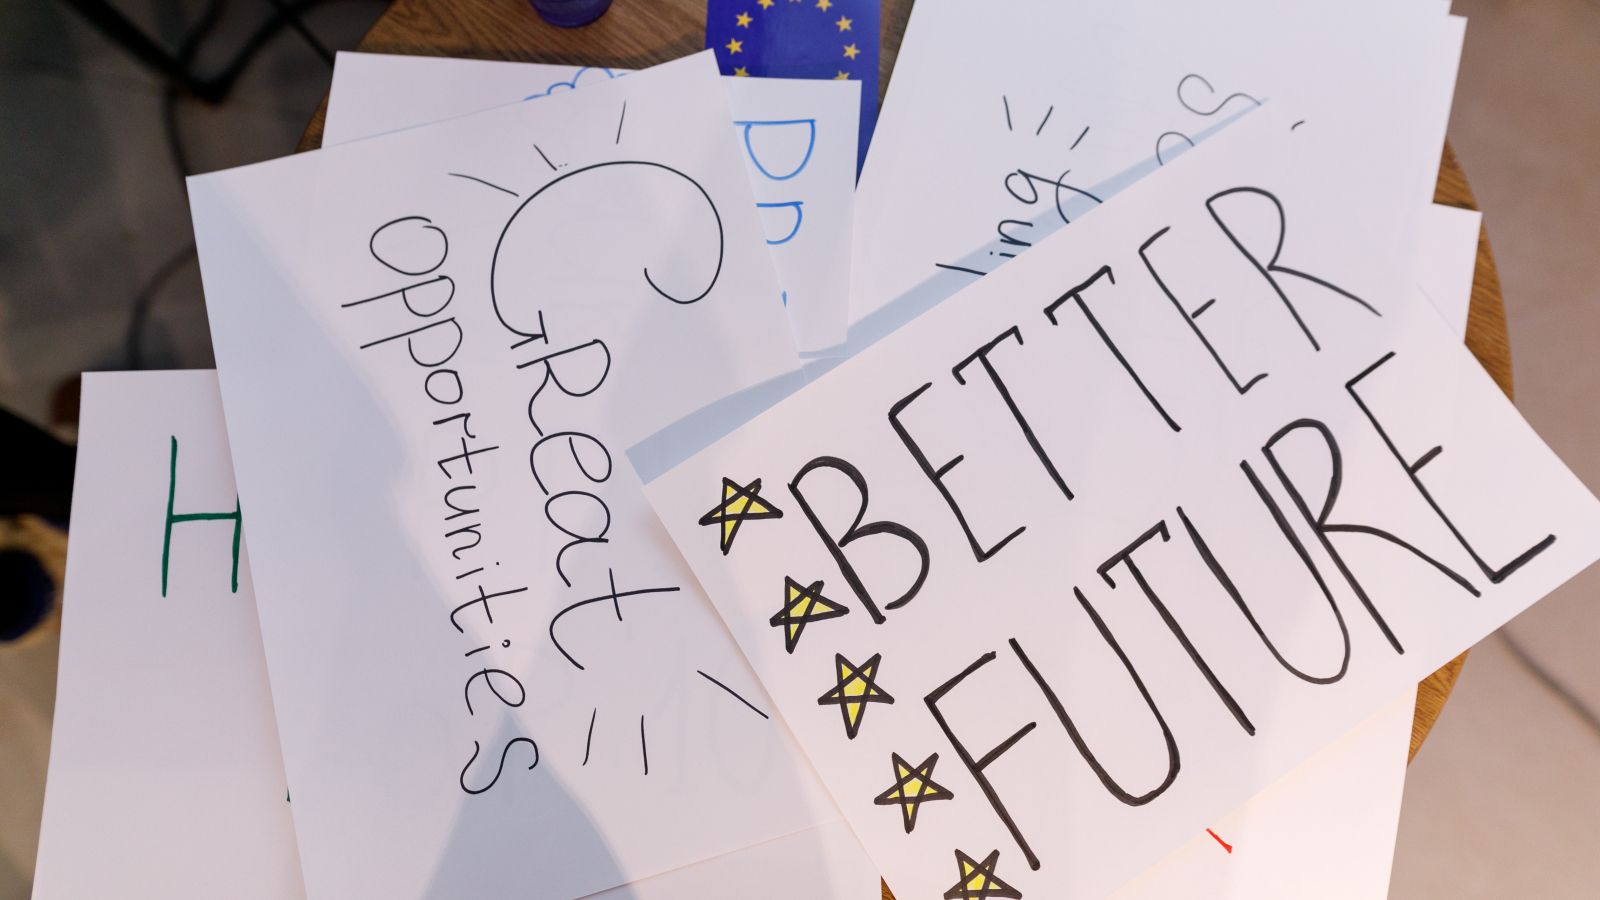 GReat
opportunities
BETTER
FUTURE
H
ling